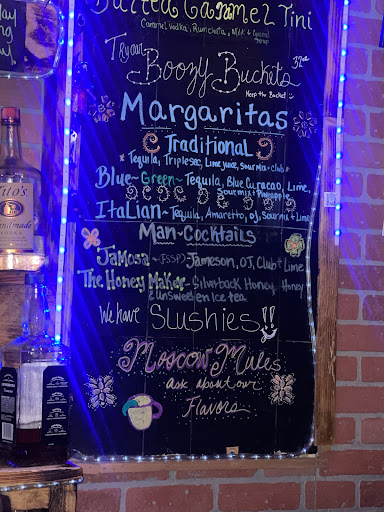 Salted Caramel Tini
Caramel Vodka, Rumchata, Milk & Caramel
Syrup
Try our
Boozy Buckets
32oz
Keep the Bucket
Margaritas
Traditional
Tequila, Triplesec, Lime juice, Sour mix + club
Blue ~ Green ~ Tequila, Blue Curacao, Lime,
Sour mix + Pineapple
Italian ~ Tequila, Amaretto, OJ, Sour mix + Lime
Man-Cocktails
Jamosa ~ (SSP) Jameson, OJ, Club + Lime
The Honey Maker ~ Silverback Honey, Honey
& UnSweeten Ice tea
We have Slushies!!
Moscow Mules
ask about our
Flavors
Tito's
Handmade